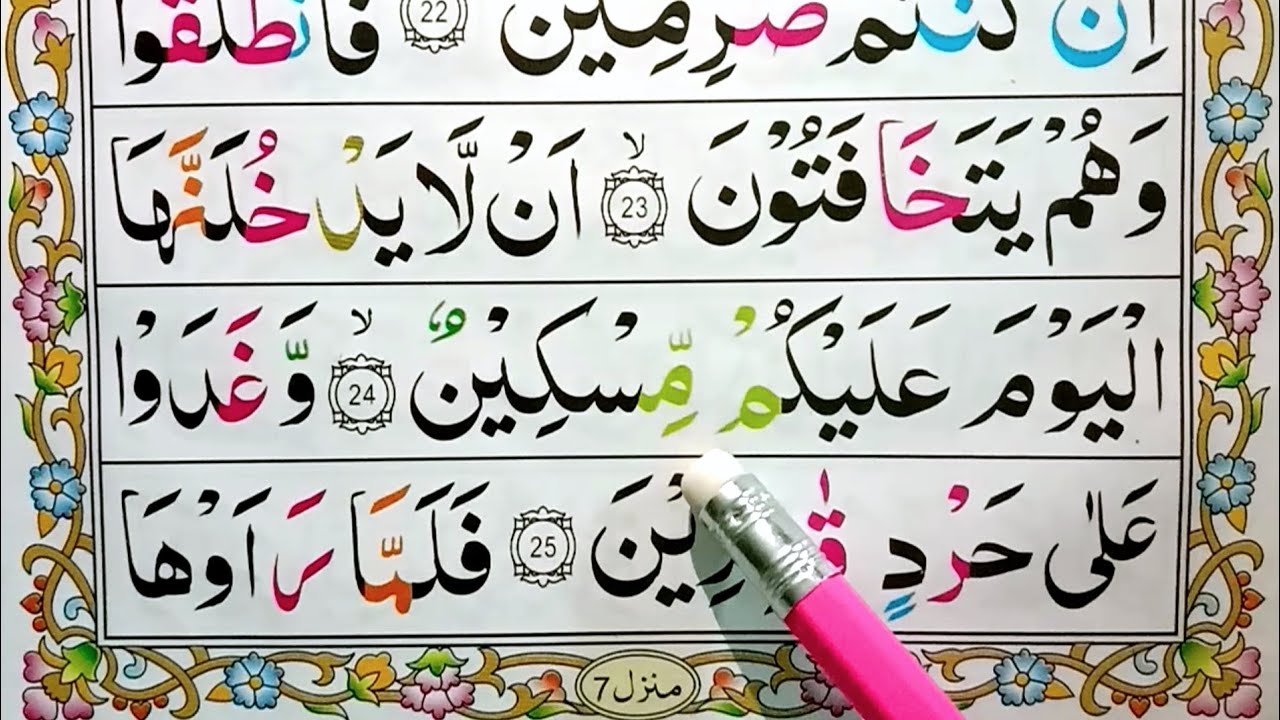 اِنْ كُنْتُمْ صٰرِمِيْنَ 22 فَانْطَلَقُوْا
وَهُمْ يَتَخَافَتُوْنَ ۙ 23 اَنْ لَّا يَدْخُلَنَّهَا
الْيَوْمَ عَلَيْكُمْ مِّسْكِيْنٌ ۙ 24 وَّغَدَوْا
عَلٰى حَرْدٍ قٰدِرِيْنَ 25 فَلَمَّا رَاَوْهَا
منزل 7